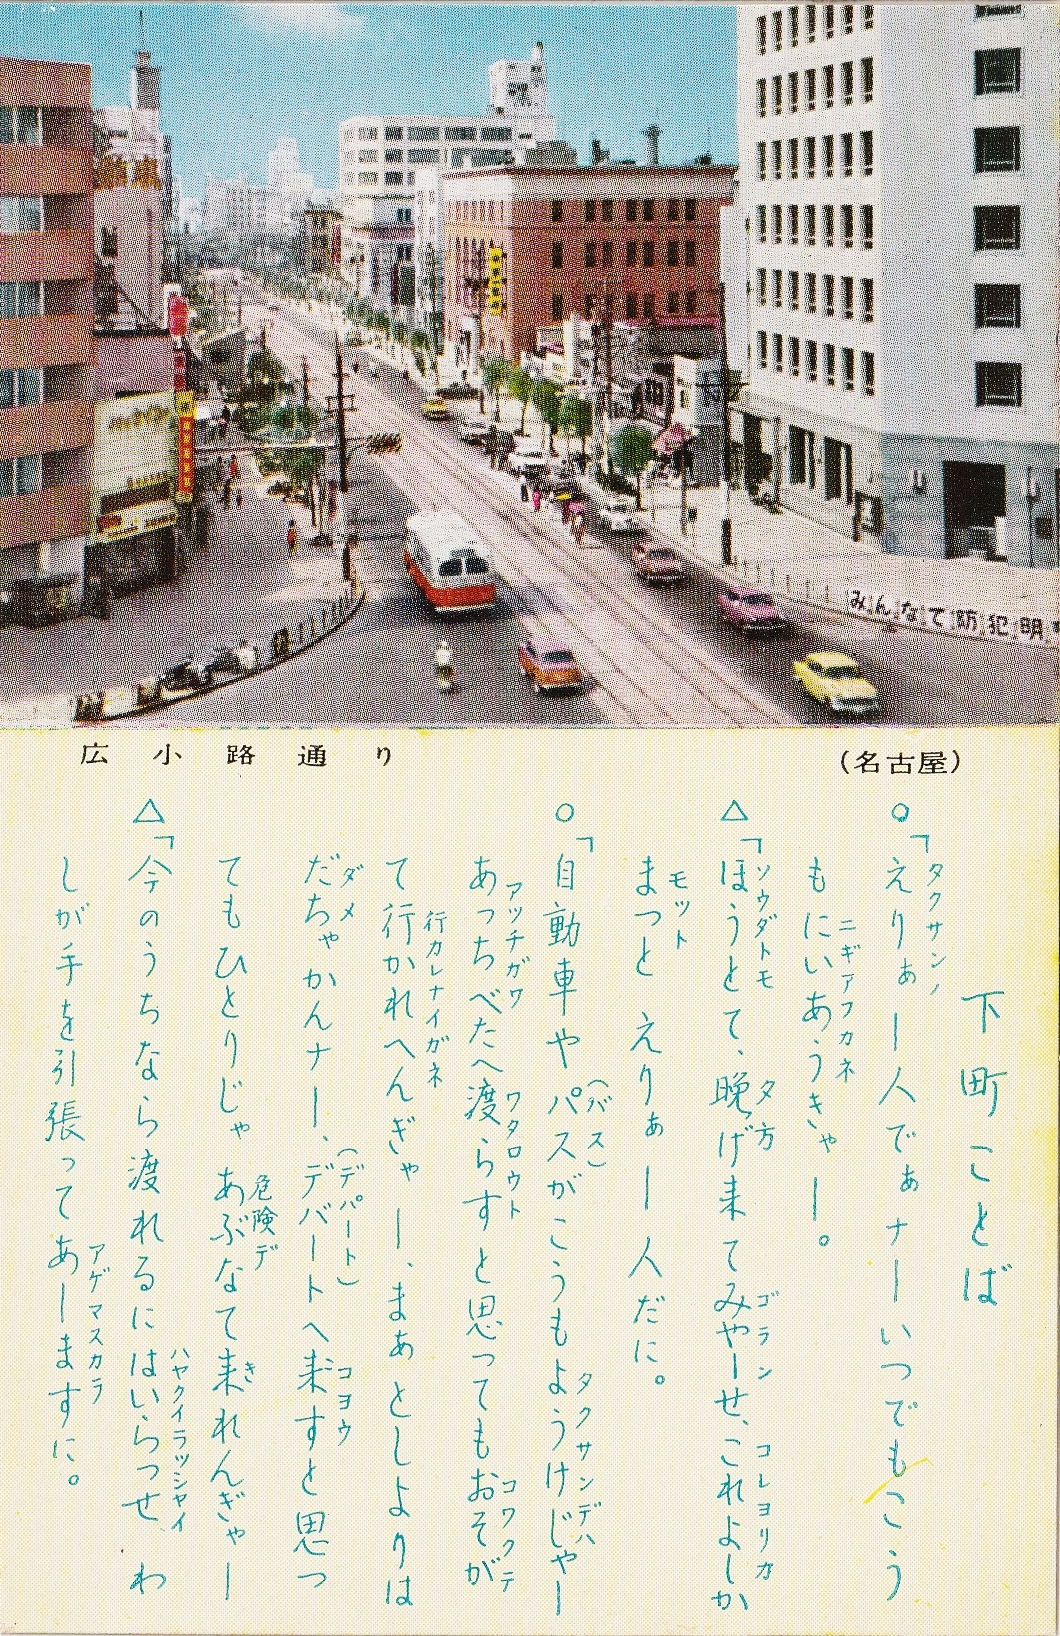 みんなで防犯明
広小路通り
（名古屋）
下町ことば
タクサンノ
○「えりぁー人でぁナーいつでもこう
ニギアフカネ
もにいあうきゃー。
ソウダトモ 夕方 ゴラン コレヨリカ
△「ほうとて、晩げ来てみやーせ、これよしか
モット
まっと えりぁー人だに。
（バス） タクサンデハ
○「自動車やパスがこうもようけじゃー
アッチガワ ワタロウト コワクテ
あっちべたへ渡らすと思ってもおそが
行カレナイガネ
て行かれへんぎゃー、まぁとしよりは
ダメ （デパート） コヨウ
だちゃかんナー、デバートへ来すと思っ
危険デ き
てもひとりじゃあぶなて来れんぎゃー
ハヤクイラッシャイ
△「今のうちなら渡れるにはいらっせ わ
アゲマスカラ
しが手を引張ってあーますに。